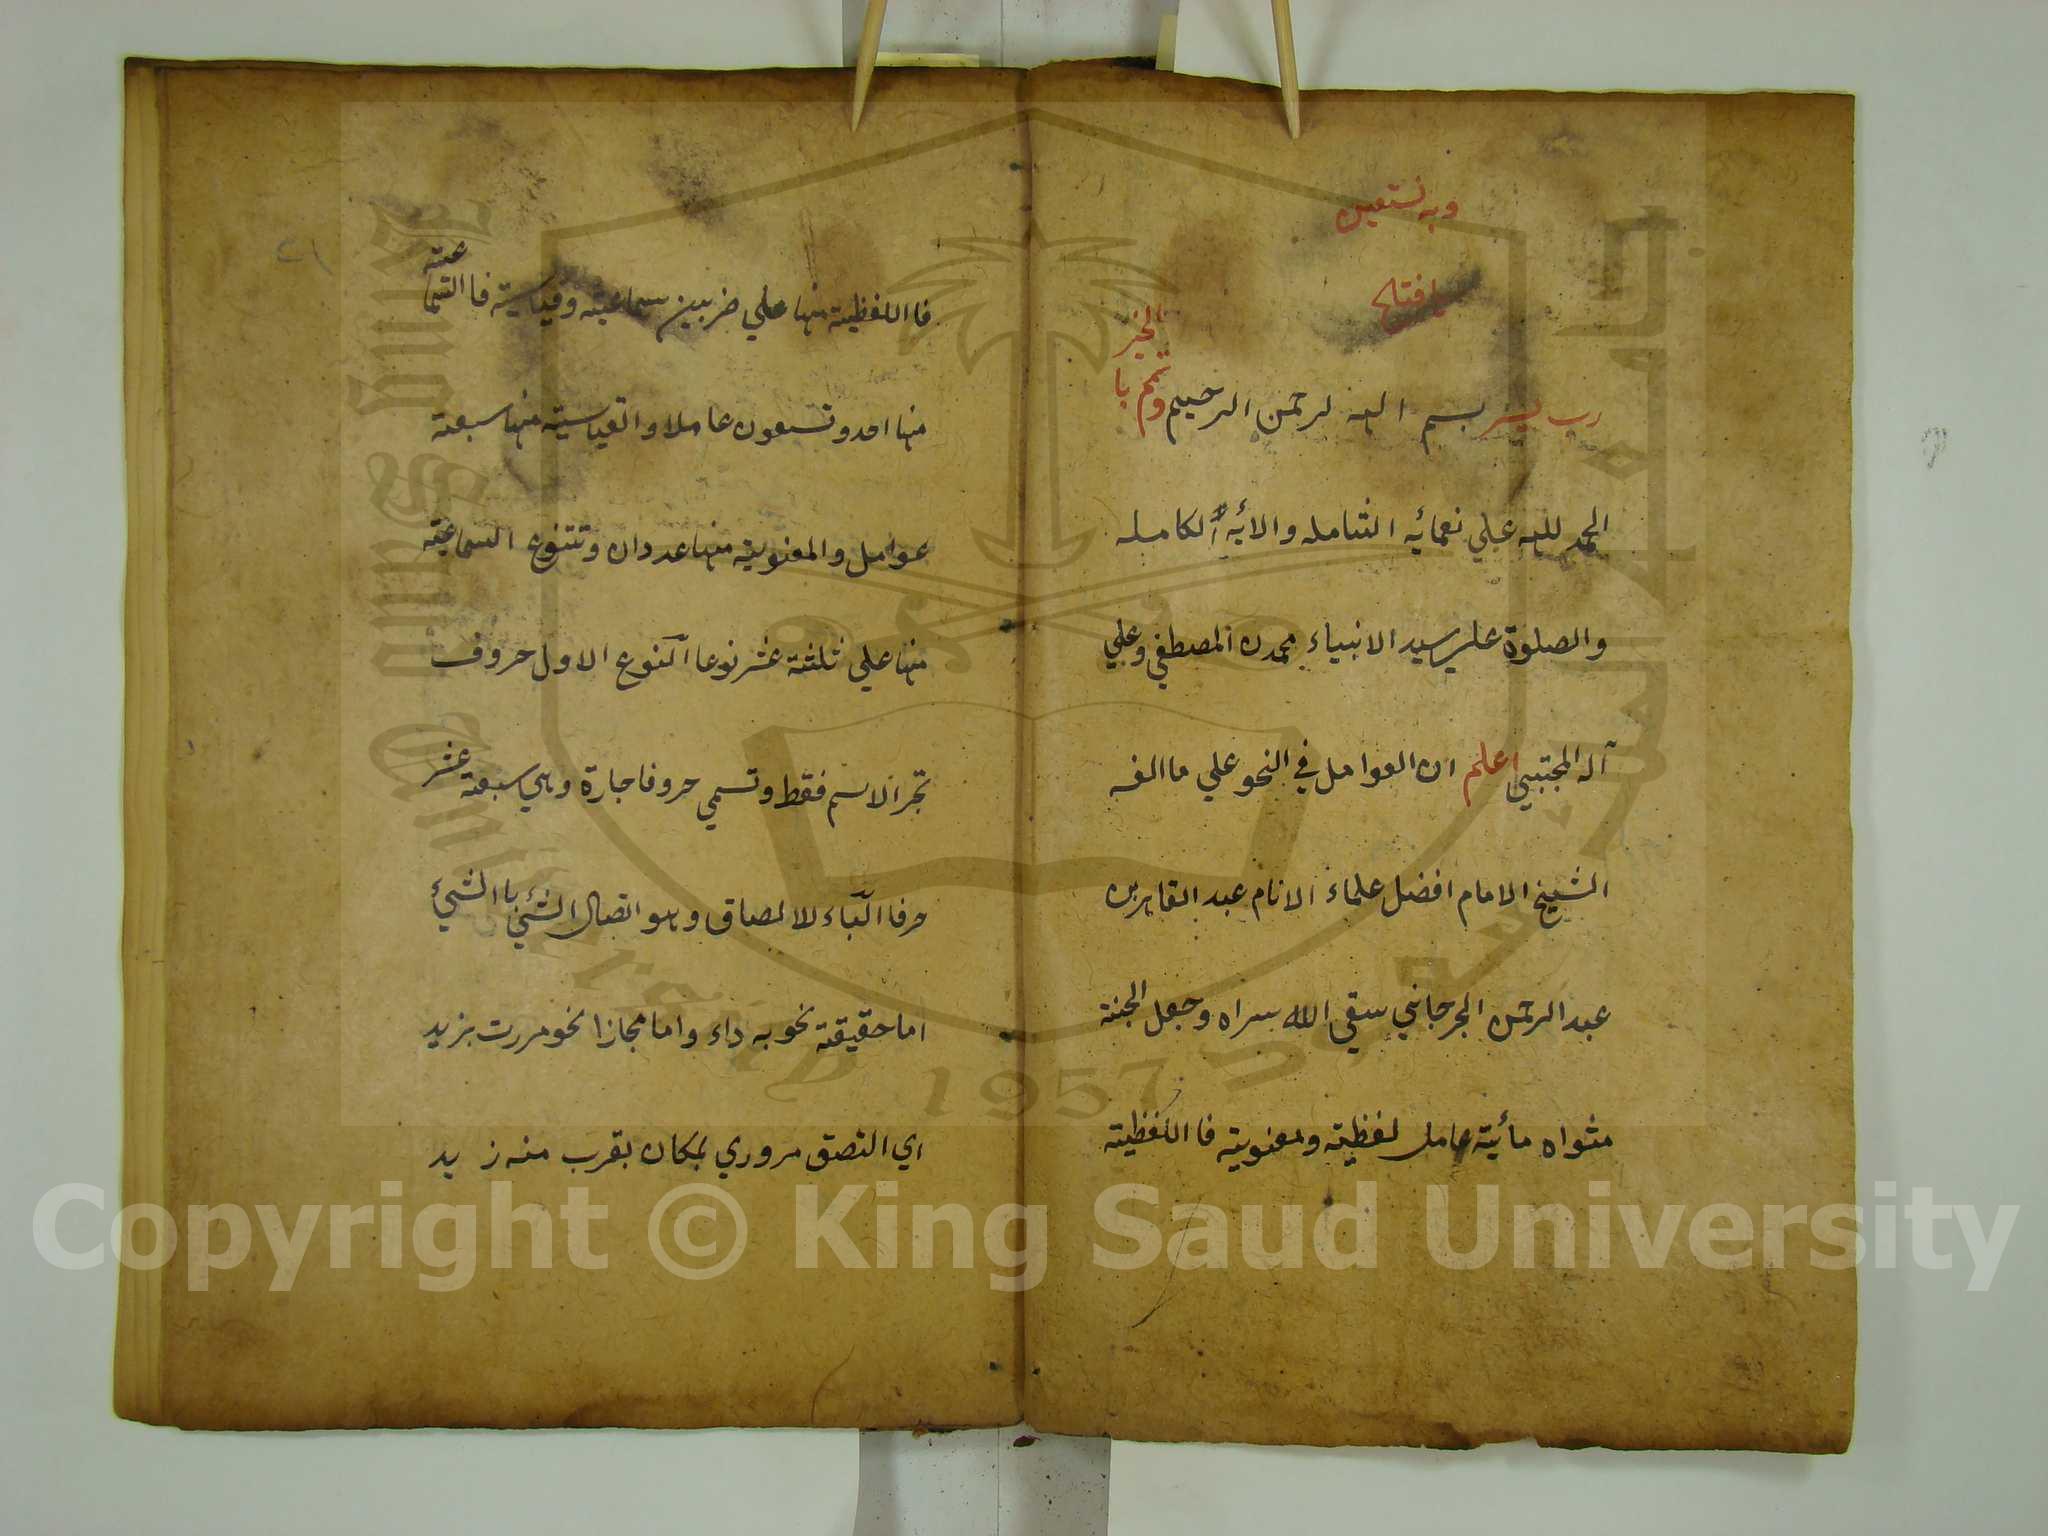 وبه نستعين
يا فتاح
رب يسر بسم الله لرحمن الرحيم وتمم با لخير
الحمد لله علي نعمائه الشامله والائه الكامله
والصلوة علي سيد الانبياء محمدن المصطفي وعلي
آله المجتبي اعلم ان العوامل في النحو علي ما الفه
الشيخ الامام افضل علماء الانام عبد القاهر بن
عبد الرحمن الجرجاني سقي الله سراه وجعل الجنة
مثواه مأية عامل لفظية ومعنوية فا اللفظية
٢١
فا اللفظية منها علي ضربين سماعية وقياسية فا السماعية
منها احد وتسعون عاملا والقياسية منها سبعة
عوامل والمعنوية منها عددان وتتنوع السماعية
منها علي ثلثة عشر نوعا النوع الاول حروف
تجر الاسم فقط وتسمي حروفا جارة وهي سبعة عشر
حرفا الباء للالصاق وهو اتصال الشئ با الشيء
اما حقيقة نحو به داء واما مجازا نحو مررت بزيد
اي التصق مروري بمكان بقرب منه زيد
Copyright © King Saud University
King Saud University
1957